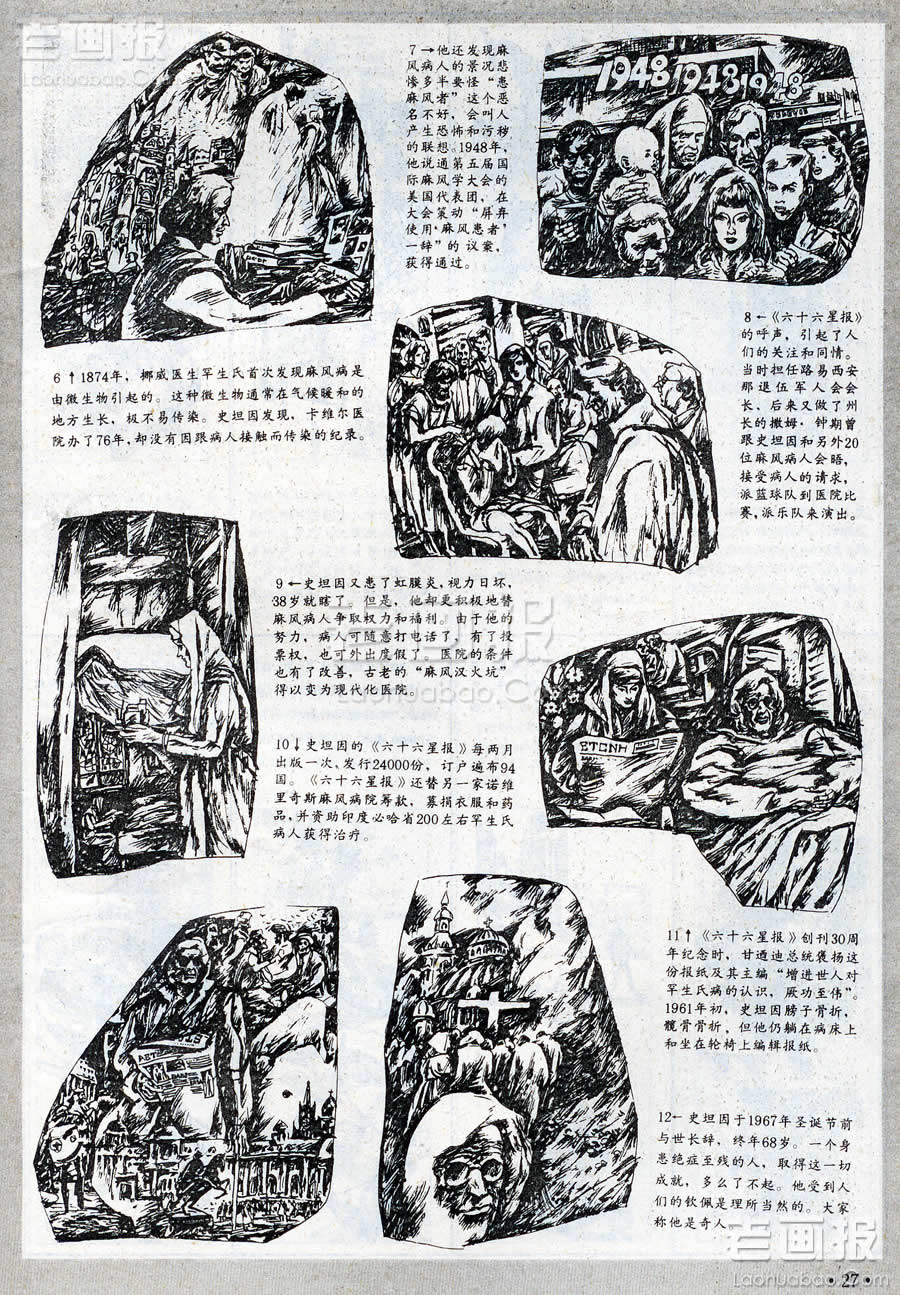 老画报
Laohuabao.Com
7→他还发现麻
风病人的景况悲
惨多半要怪“患
麻风者”这个恶
名不好，会叫人
产生恐怖和污秽
的联想。1948年，
他说通第五届国
际麻风学大会的
美国代表团，在
大会策动“屏弃
使用‘麻风患者’
一辞”的议案，
获得通过。
1948 1948 1948
6↑1874年，挪威医生罕生氏首次发现麻风病是
由微生物引起的。这种微生物通常在气候暖和的
地方生长，极不易传染。史坦因发现，卡维尔医
院办了76年，却没有因跟病人接触而传染的纪录。
8←《六十六星报》
的呼声，引起了人
们的关注和同情。
当时担任路易西安
那退伍军人会会
长、后来又做了州
长的撒姆·钟期曾
跟史坦因和另外20
位麻风病人会晤，
接受病人的请求，
派蓝球队到医院比
赛，派乐队来演出。
9←史坦因又患了虹膜炎，视力日坏，
38岁就瞎了。但是，他却更积极地替
麻风病人争取权力和福利。由于他的
努力，病人可随意打电话了，有了投
票权，也可外出度假了。医院的条件
也有了改善，古老的“麻风汉火坑”
得以变为现代化医院。
老画报
Laohuabao.Com
BTCNH
10↓史坦因的《六十六星报》每两月
出版一次、发行24000份，订户遍布94
国。《六十六星报》还替另一家诺维
里奇斯麻风病院筹款，募捐衣服和药
品，并资助印度必哈省200左右罕生氏
病人获得治疗。
11↑《六十六星报》创刊30周
年纪念时，甘迺迪总统褒扬这
份报纸及其主编“增进世人对
罕生氏病的认识，厥功至伟”。
1961年初，史坦因膀子骨折，
髋骨骨折，但他仍躺在病床上
和坐在轮椅上编辑报纸。
12←史坦因于1967年圣诞节前
与世长辞，终年68岁。一个身
患绝症至残的人，取得这一切
成就，多么了不起。他受到人
们的钦佩是理所当然的。大家
称他是奇人。
老画报
Laohuabao.Com
·27·